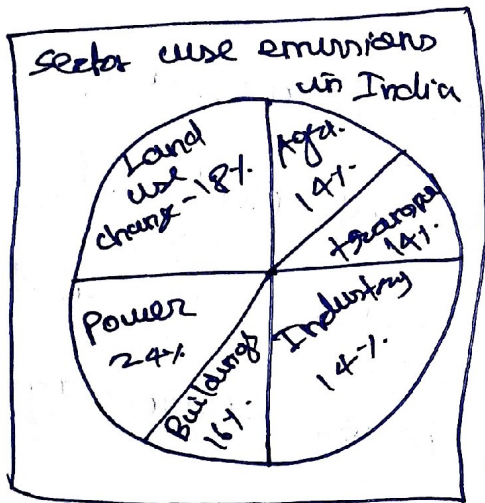 Sector wise emissions
in India
Land
use
change - 18%.
Agri.
14%.
transport
14%.
Industry
14%.
Buildings
16%.
Power
24%.